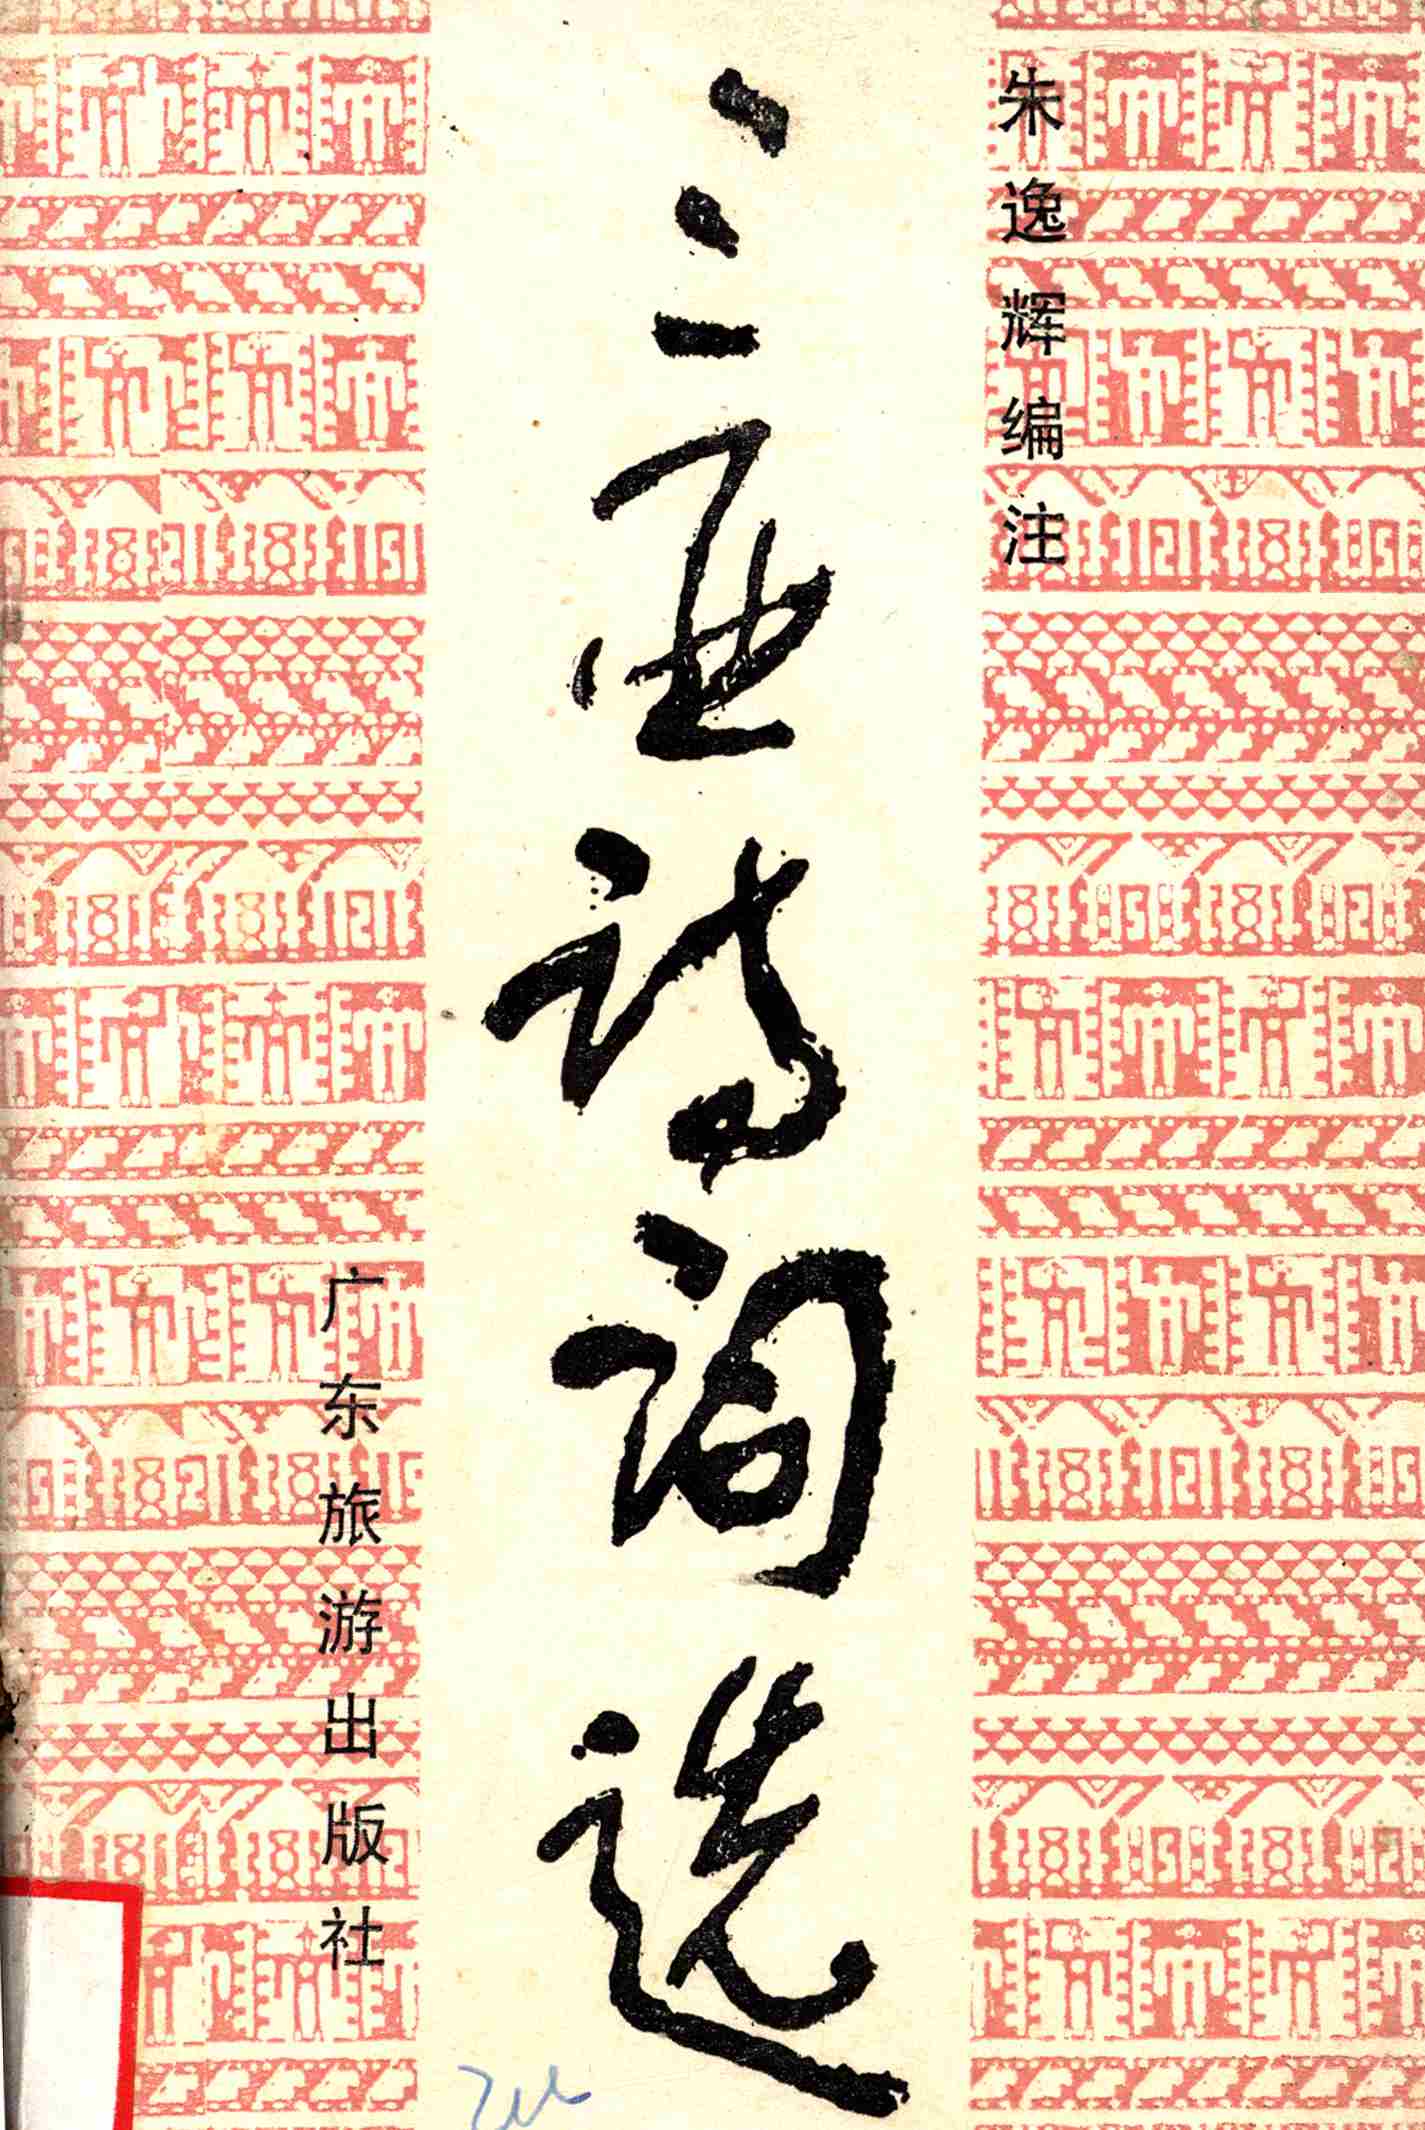 朱逸辉编注
三亚诗词选
广东旅游出版社